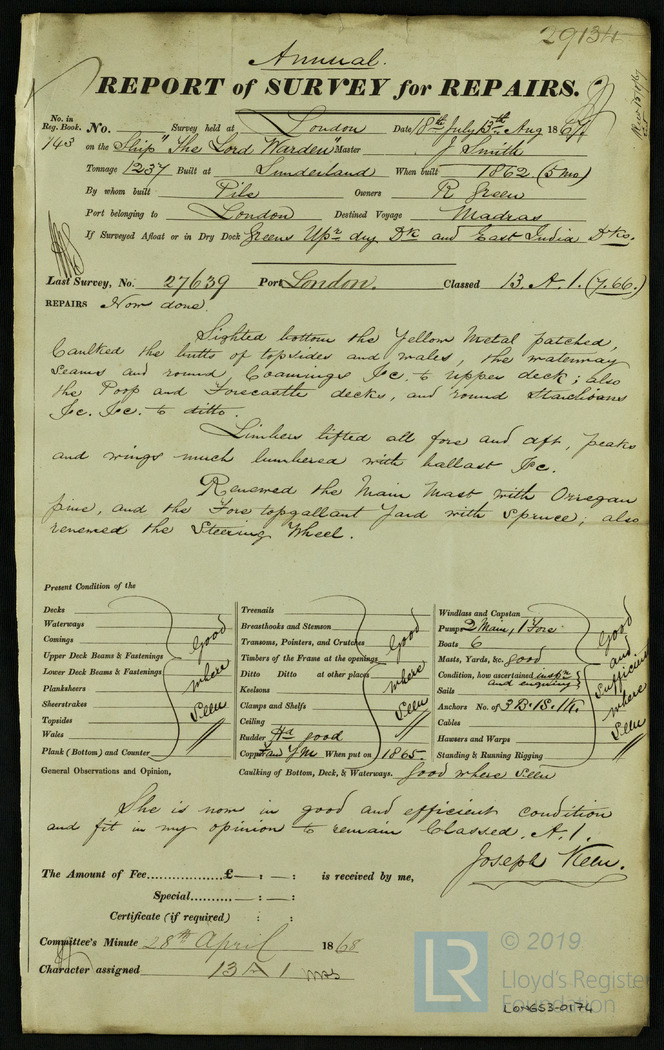 29134
Annual.
REPORT of SURVEY for REPAIRS.
No. in Reg. Book. No. Survey held at London Date 18th July, 13th Aug 1867
943 on the Ship "The Lord Warden Master J Smith
Tonnage 1237 Built at Sunderland When built 1862 (5 mo)
By whom built Pile Owners R Green
Port belonging to London Destined Voyage Madras
If Surveyed Afloat or in Dry Dock Greens Upr dry Dk and East India Dks.
Last Survey, No. 27639 Port London. Classed 13. A. 1. (7.66.)
REPAIRS Now done.
Sighted bottom the Yellow Metal patched,
Caulked the butts of topsides and wales, the waterway
seams and round Coamings &c. to upper deck; also
the Poop and Forecastle decks, and round Stanchions
&c. &c. to ditto.
Limbers lifted all fore and aft, peaks
and wings much lumbered with ballast &c.
Renewed the Main Mast with Orregan
pine, and the Fore topgallant Yard with Spruce; also
renewed the Steering Wheel.
Present Condition of the
Decks
Waterways
Comings
Upper Deck Beams & Fastenings
Lower Deck Beams & Fastenings
Planksheers
Sheerstrakes
Topsides
Wales
Plank (Bottom) and Counter
Good where seen
Treenails
Breasthooks and Stemson
Transoms, Pointers, and Crutches
Timbers of the Frame at the openings
Ditto Ditto at other places
Keelsons
Clamps and Shelfs
Ceiling
Rudder good
Copper and YM When put on 1865
Good where seen
Windlass and Capstan
Pumps 2 Main, 1 Fore
Boats 6
Masts, Yards, &c. good
Condition, how ascertained inspn and enquiry
Sails
Anchors No. of 3B. 1S. 1K.
Cables
Hawsers and Warps
Standing & Running Rigging
Good and sufficient where seen
General Observations and Opinion, Caulking of Bottom, Deck, & Waterways. good where seen
She is now in good and efficient condition
and fit in my opinion to remain Classed. A. 1.
Joseph Keen.
The Amount of Fee £ — : — : is received by me,
Special — : — :
Certificate (if required) : :
Committee's Minute 28th April 1868
Character assigned 13 A 1
LR © 2019
Lloyd's Register
Foundation
LON653-0174